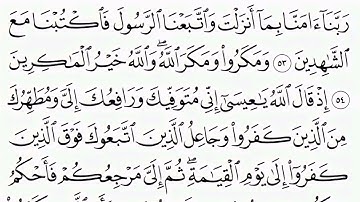 رَبَّنَآ ءَامَنَّا بِمَآ أَنزَلْتَ وَٱتَّبَعْنَا ٱلرَّسُولَ فَٱكْتُبْنَا مَعَ
ٱلشَّٰهِدِينَ ٥٣ وَمَكَرُوا۟ وَمَكَرَ ٱللَّهُۖ وَٱللَّهُ خَيْرُ ٱلْمَٰكِرِينَ
٥٤ إِذْ قَالَ ٱللَّهُ يَٰعِيسَىٰٓ إِنِّى مُتَوَفِّيكَ وَرَافِعُكَ إِلَىَّ وَمُطَهِّرُكَ
مِنَ ٱلَّذِينَ كَفَرُوا۟ وَجَاعِلُ ٱلَّذِينَ ٱتَّبَعُوكَ فَوْقَ ٱلَّذِينَ
كَفَرُوٓا۟ إِلَىٰ يَوْمِ ٱلْقِيَٰمَةِۖ ثُمَّ إِلَىَّ مَرْجِعُكُمْ فَأَحْكُمُ